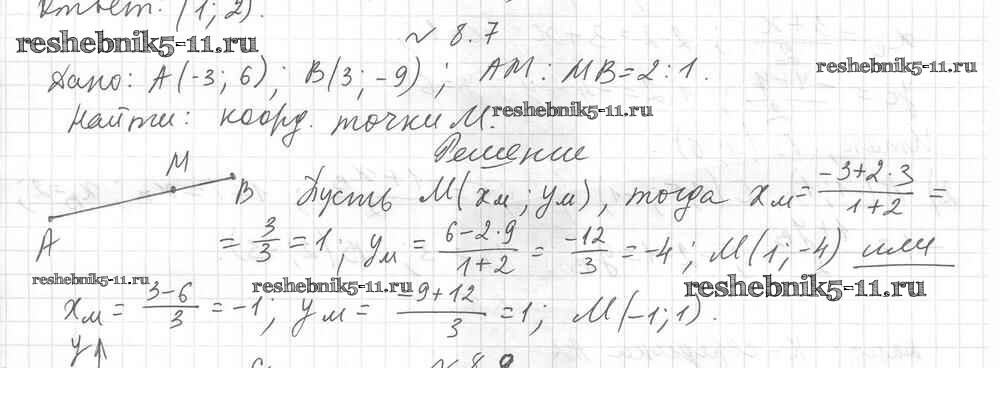 Ответ: (1; 2).
reshebnik5-11.ru
№ 8.7
Дано: A(-3; 6); B(3; -9); AM: MB=2:1.
reshebnik5-11.ru
Найти: коорд. точки M.
reshebnik5-11.ru
Решение
M
B
A
Пусть M(xм; yм), тогда xм = (-3+2·3)/(1+2) =
= 3/3 = 1; yм = (6-2·9)/(1+2) = -12/3 = -4; M(1; -4) или
reshebnik5-11.ru
reshebnik5-11.ru
reshebnik5-11.ru
xм = (3-6)/3 = -1; yм = (-9+12)/3 = 1; M(-1; 1).
y